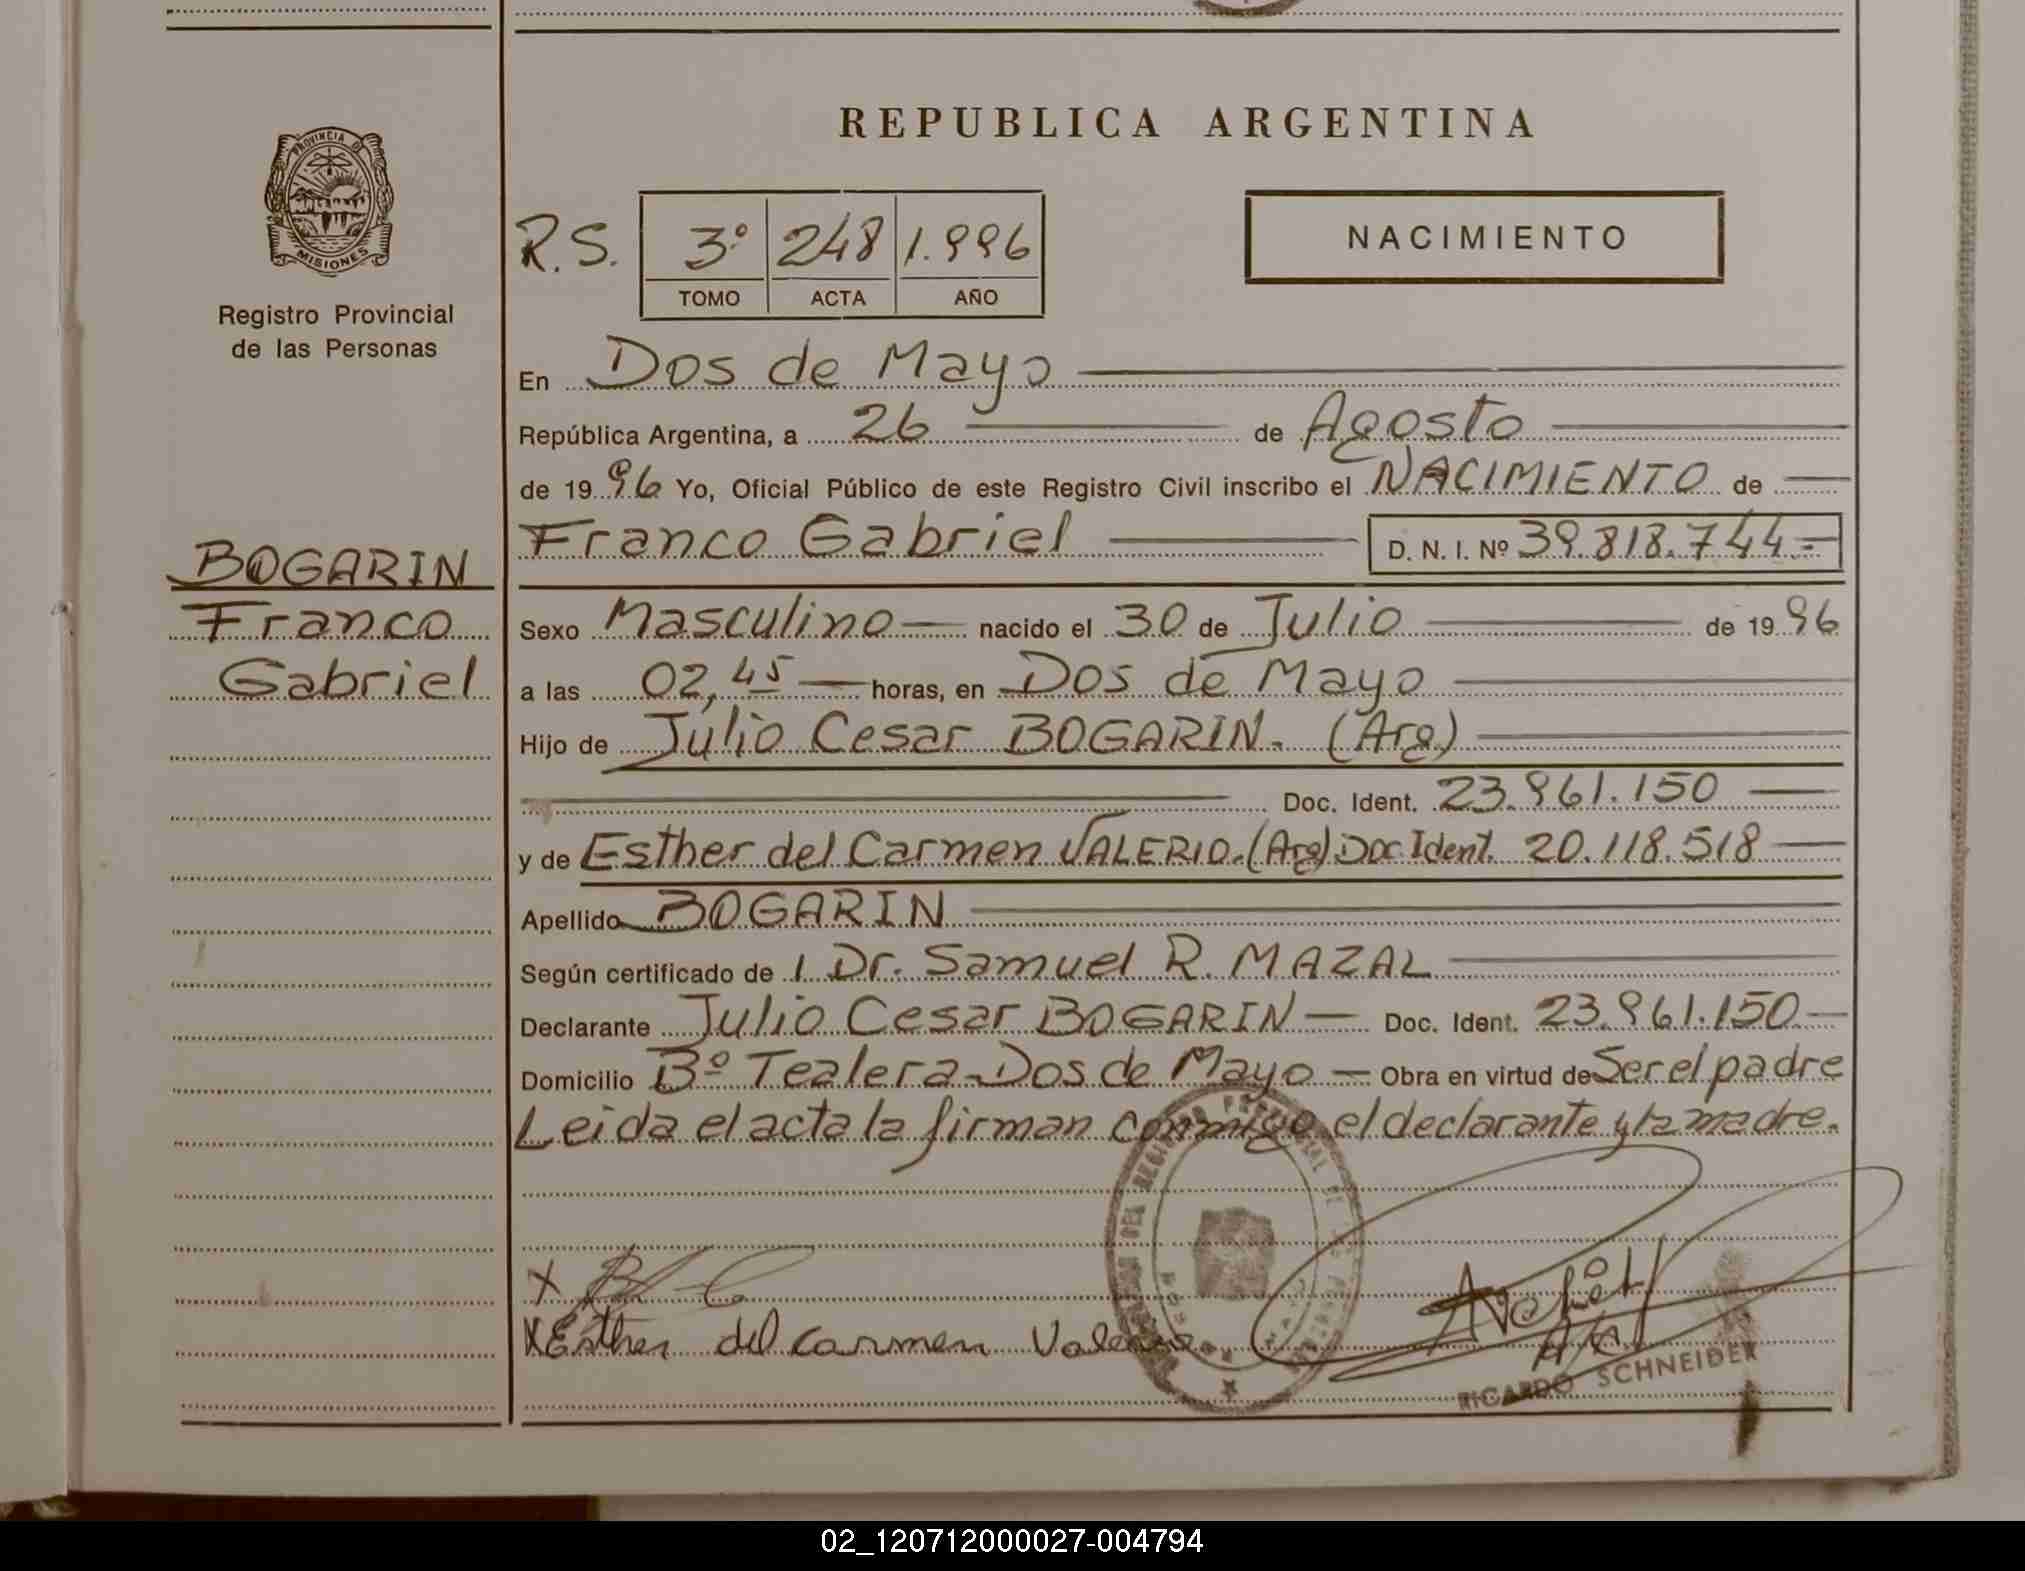 PROVINCIA DE
MISIONES
Registro Provincial
de las Personas
BOGARIN
Franco
Gabriel
REPUBLICA ARGENTINA
R.S. 3º 248 1.996
TOMO ACTA AÑO
NACIMIENTO
En Dos de Mayo
República Argentina, a 26 de Agosto
de 1996 Yo, Oficial Público de este Registro Civil inscribo el NACIMIENTO de
Franco Gabriel D. N. I. Nº 39.818.744.-
Sexo Masculino nacido el 30 de Julio de 1996
a las 02,45 horas, en Dos de Mayo
Hijo de Julio Cesar BOGARIN. (Arg)
Doc. Ident. 23.961.150
y de Esther del Carmen VALERIO.(Arg) Doc Ident. 20.118.518
Apellido BOGARIN
Según certificado de 1 Dr. Samuel R. MAZAL
Declarante Julio Cesar BOGARIN Doc. Ident. 23.961.150
Domicilio Bº Tealera-Dos de Mayo Obra en virtud de Ser el padre
Leida el acta la firman conmigo el declarante y la madre.
X
X Esther del carmen Valerio
RICARDO SCHNEIDER
02_120712000027-004794